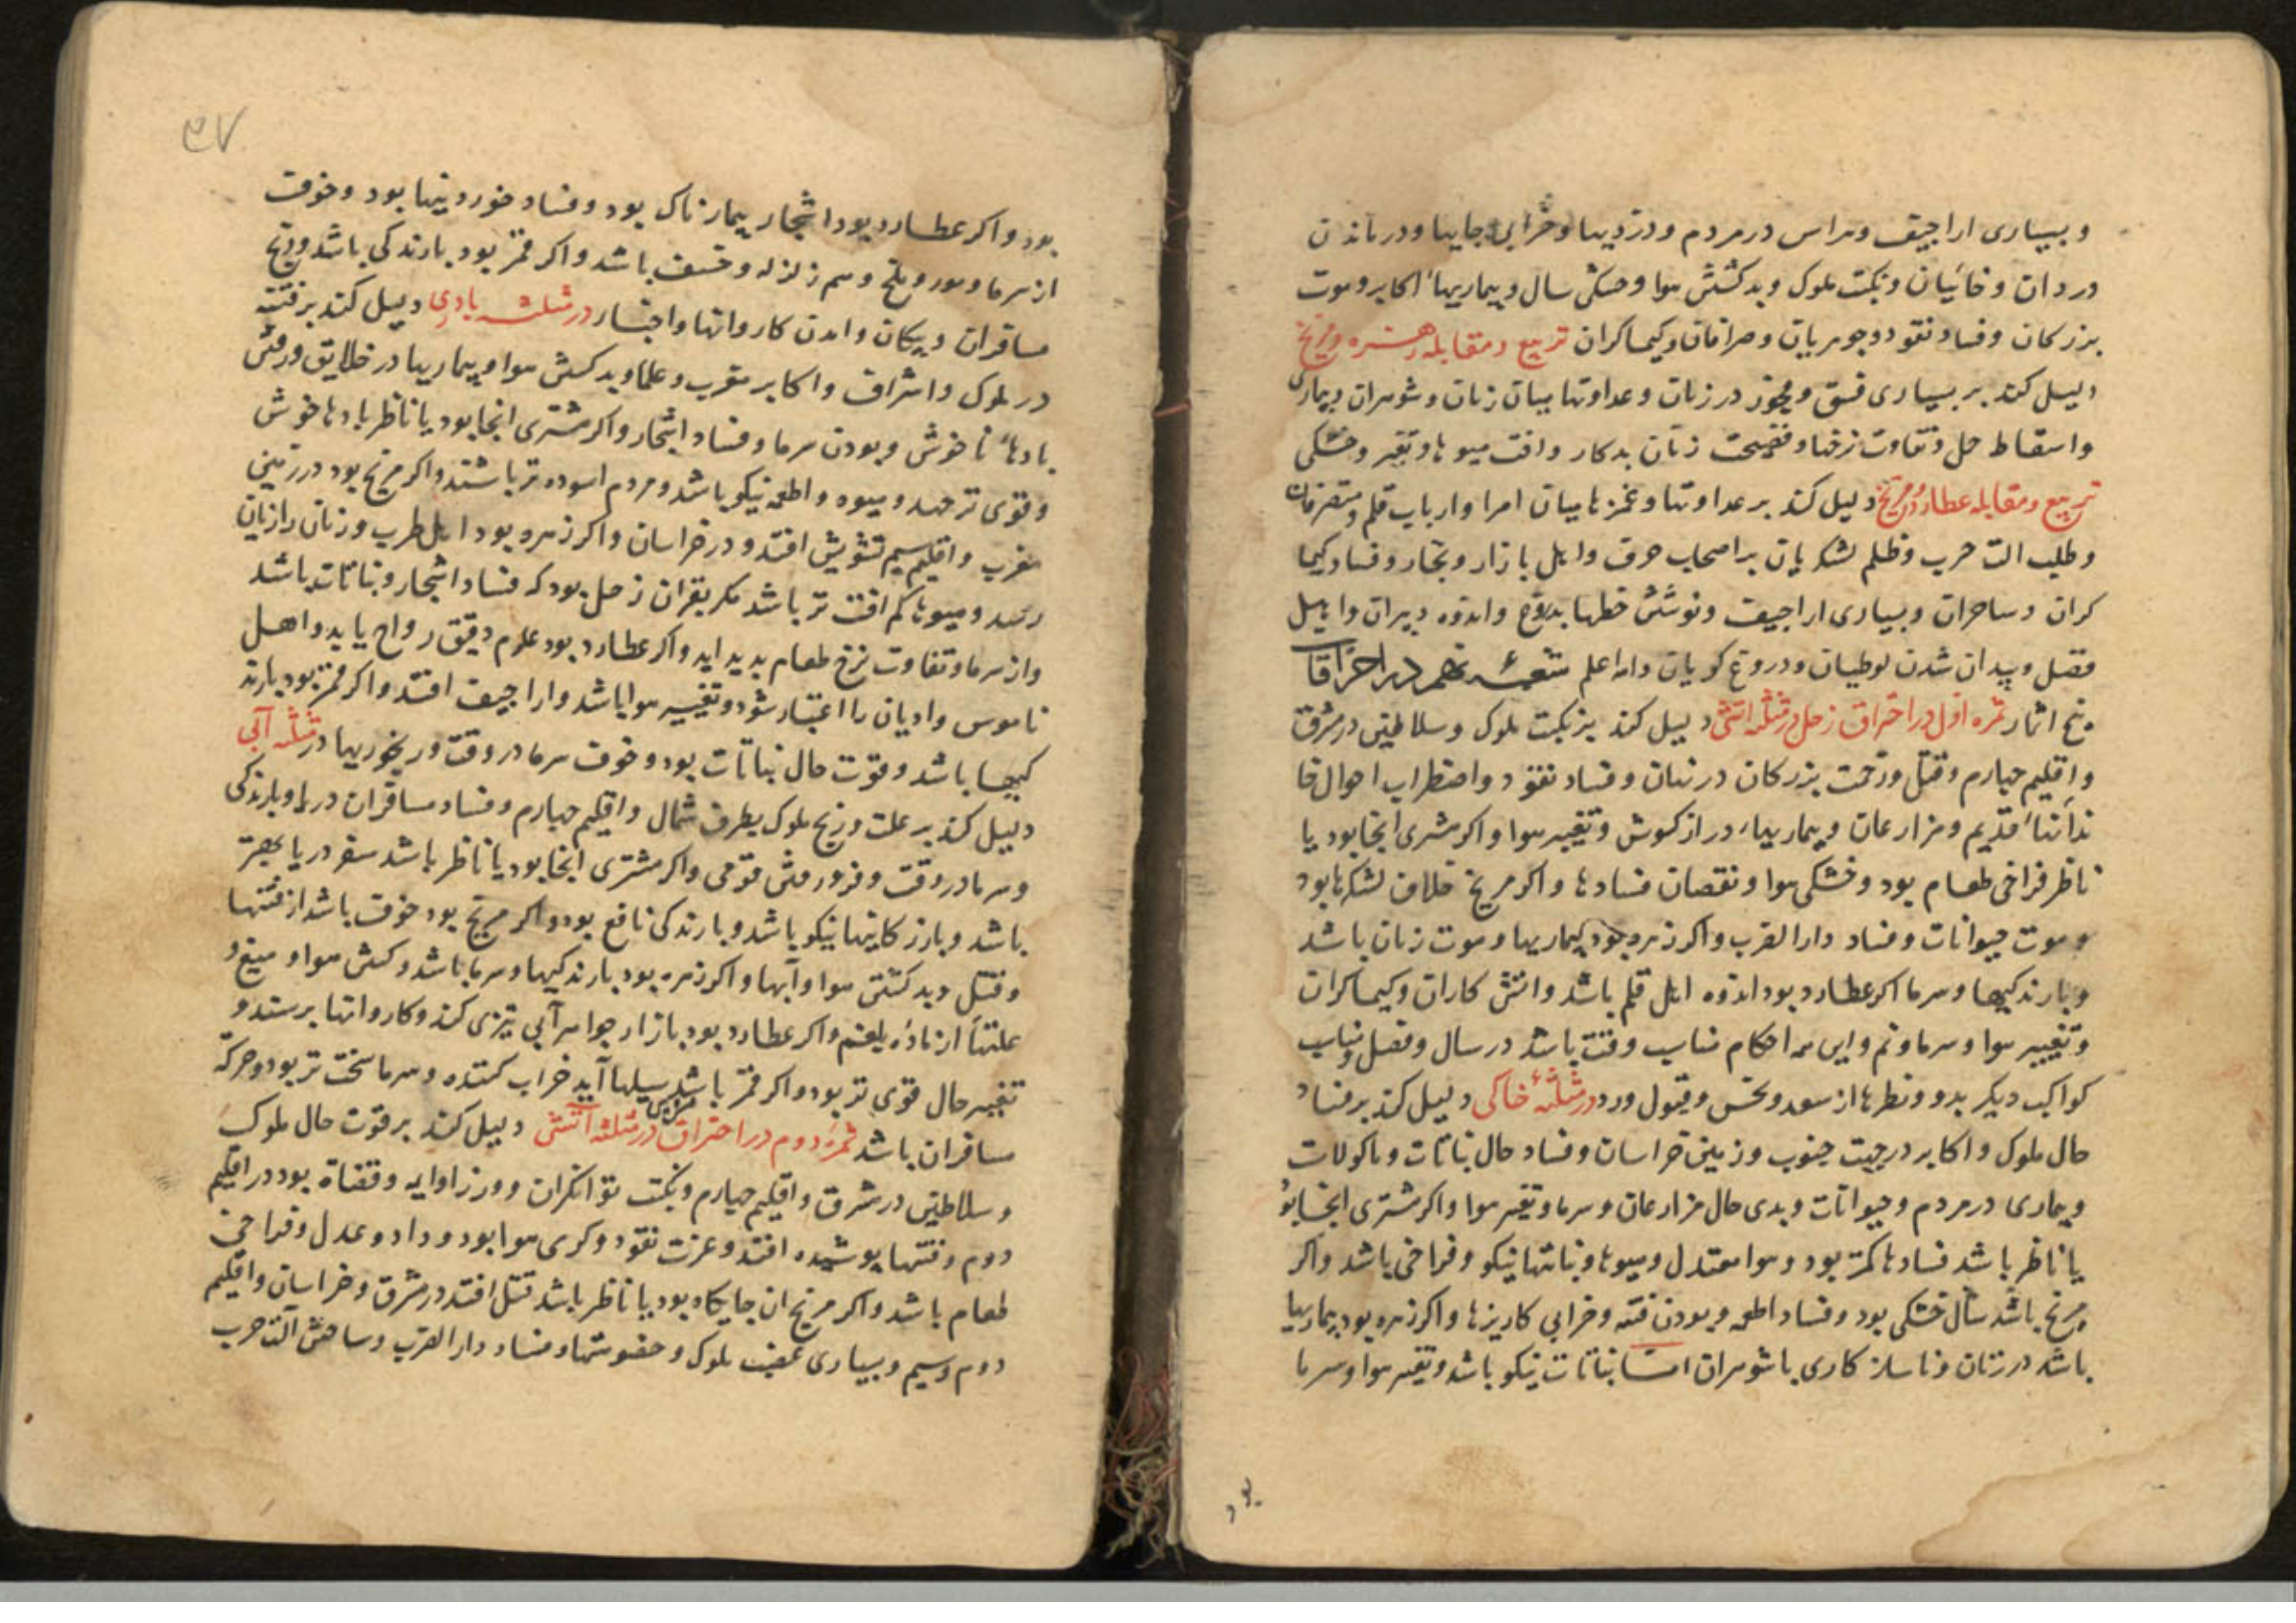 و بسیاری اراجیف و هراس در مردم و دزدیها و خرابی جایها و درماندن
دزدان و خائنان و نکبت ملوک و بد کشتن هوا و خشکی سال و بیماریهاء اکابر و موت
بزرکان و فساد نقود و جوهریان و صرافان و کیمیاکران تربیع و مقابله زهره و مریخ
دلیل کند بر بسیاری فسق و فجور در زنان و عداوتها میان زنان و شوهران و بیماری
و اسقاط حمل و تفاوت نرخها و فضیحت زنان بدکار و افت میوها و تغیر و خشکی
تربیع و مقابله عطارد و مریخ دلیل کند بر عداوتها و غمزها میان امرا و ارباب قلم و متصرفان
و طلب الت حرب و ظلم لشکریان بر اصحاب حرف و اهل بازار و تجار و فساد کیمیا
کران و ساحران و بسیاری اراجیف و نوشتن خطها بدروغ و اندوه دبیران و اهل
فضل و پیدا شدن لوطیان و دروغ کویان والله اعلم شعبه نهم در احتراقات
پنج اثمار ثمره اول در احتراق زحل در مثلثه اتشی دلیل کند بر نکبت ملوک و سلاطین در مشرق
و اقلیم چهارم و قتل و زحمت بزرکان در نهان و فساد نقود و اضطراب احوال خا
ندانهاء قدیم و مزارعان و بیماریهاء دراز کوش و تغییر هوا و اکر مشتری انجا بود یا
ناظر فراخی طعام بود و خشکی هوا و نقصان فسادها و اکر مریخ خلاف لشکرها بود
و موت حیوانات و فساد دار الضرب و اکر زهره بود بیماریها و موت زنان باشد
و بارندکیها و سرما اکر عطارد بود اندوه اهل قلم باشد و اتش کاران و کیمیاکران
و تغییر هوا و سرما و نم و این همه احکام مناسب وقت باشد در سال و فصل و مناسب
کواکب دیکر بدو و نظرها از سعد و نحس و قبول و رد در مثلثهٔ خاکی دلیل کند بر فساد
حال ملوک و اکابر در جهت جنوب و زمین خراسان و فساد حال نباتات و ماکولات
و بیماری در مردم و حیوانات و بدی حال مزارعان و سرما و تغییر هوا و اکر مشتری انجا بود
یا ناظر باشد فسادها کمتر بود و هوا معتدل و میوها و نباتها نیکو و فراخی باشد و اکر
مریخ باشد سال خشکی بود و فساد اطعمه و بودن فتنه و خرابی کاریزها و اکر زهره بود بیماریها
باشد در زنان و ناسازکاری با شوهران اما نباتات نیکو باشد و تغییر هوا و سرما
بود
۳۷
بود و اکر عطارد بود اشجار بیمارناک بود و فساد خوردنیها بود و خوف
از سرما و مور و ملخ و هم زلزله و خسف باشد و اکر قمر بود بارندکی باشد و رنج
مسافران و پیکان و امدن کاروانها و اخبار در مثلثه بادی دلیل کند بر فتنه
در ملوک و اشراف و اکابر مغرب و علما و بد کشتن هوا و بیماریها در خلایق و رفتن
بادهاء ناخوش و بودن سرما و فساد اشجار و اکر مشتری انجا بود یا ناظر بادها خوش
و قوی تر جهد و میوه و اطعمه نیکو باشد و مردم اسوده تر باشند و اکر مریخ بود در زمین
مغرب و اقلیم سیم تشویش افتد و در خراسان و اکر زهره بود اهل طرب و زنان را زیان
رسد و میوها کم افت تر باشد مکر بقران زحل بود که فساد اشجار و نباتات باشد
و از سرما و تفاوت نرخ طعام پدید اید و اکر عطارد بود علوم دقیق رواج یابد و اهل
ناموس و ادیان را اعتبار شود و تغییر هوا باشد و اراجیف افتد و اکر قمر بود بارند
کیها باشد و قوت حال نباتات بود و خوف سرما در وقت و رنجوریها در مثلثه آبی
دلیل کند بر علت و رنج ملوک بطرف شمال و اقلیم چهارم و فساد مسافران دریا و بارندکی
و سرما در وقت و فرو رفتن قومی و اکر مشتری انجا بود یا ناظر باشد سفر دریا بهتر
باشد و بازرکانیها نیکو باشد و بارندکی نافع بود و اکر مریخ بود خوف باشد از فتنها
و قتل و بد کشتن هوا و آبها و اکر زهره بود بارندکیها و سرما باشد و کشتن هوا و میغ و
علتها از مادهٔ بلغم و اکر عطارد بود بازار جواهر آبی تیزی کند و کاروانها برسند و
تغییر حال قوی تر بود و اکر قمر باشد سیلها آید خراب کننده و سرما سخت تر بود و حرکة
مسافران باشد ثمره دوم در احتراق مریخ در مثلثه آتشی دلیل کند بر قوت حال ملوک
و سلاطین در مشرق و اقلیم چهارم و نکبت توانکران و وزرا و ایمه و قضاة بود در اقلیم
دوم و فتنها پوشیده افتد و عزت نقود و کرمی هوا بود و داد و عدل و فراخی
طعام باشد و اکر مریخ ان جایکاه بود یا ناظر باشد قتل افتد در مشرق و خراسان و اقلیم
دوم و سیم و بسیاری غضب ملوک و خصومتها و فساد دار الضرب و ساختن آلت حرب